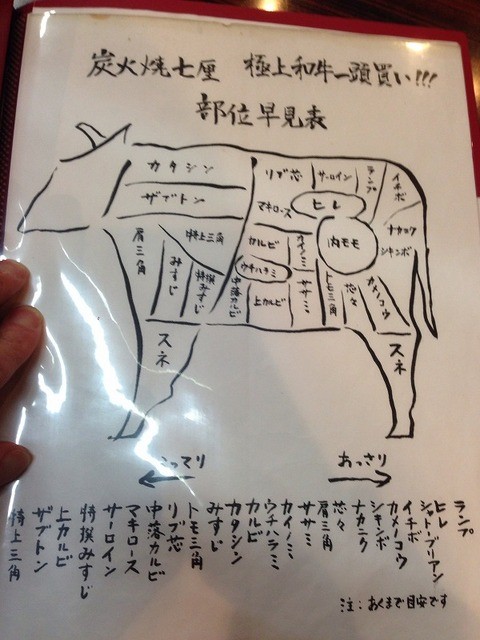 炭火焼七厘 極上和牛一頭買い!!!
部位早見表
カタシン
ザブトン
リブ芯
サーロイン
ランプ
イチボ
マキロース
ヒレ
肩三角
みすじ
特上三角
特撰みすじ
中落カルビ
カルビ
ウチハラミ
上カルビ
カイノミ
ササミ
内モモ
トモ三角
芯々
カメノコウ
ナカニク
シキンボ
スネ
スネ
こってり
あっさり
ランプ
ヒレ
シャトーブリアン
イチボ
カメノコウ
シキンボ
ナカニク
芯々
肩三角
ササミ
カイノミ
ウチハラミ
カルビ
カタシン
みすじ
トモ三角
リブ芯
中落カルビ
マキロース
サーロイン
特撰みすじ
上カルビ
ザブトン
特上三角
注:あくまで目安です